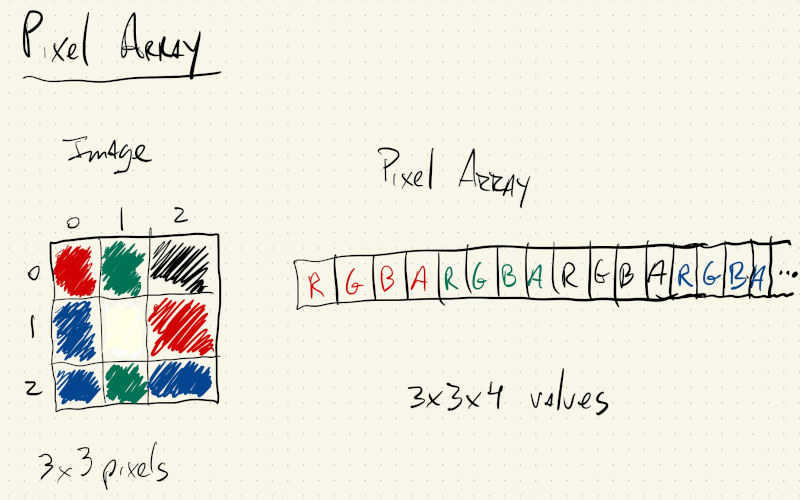 Pixel Array
Image
0 1 2
0
1
2
3x3 pixels
Pixel Array
R G B A R G B A R G B A R G B A ...
3x3x4 values